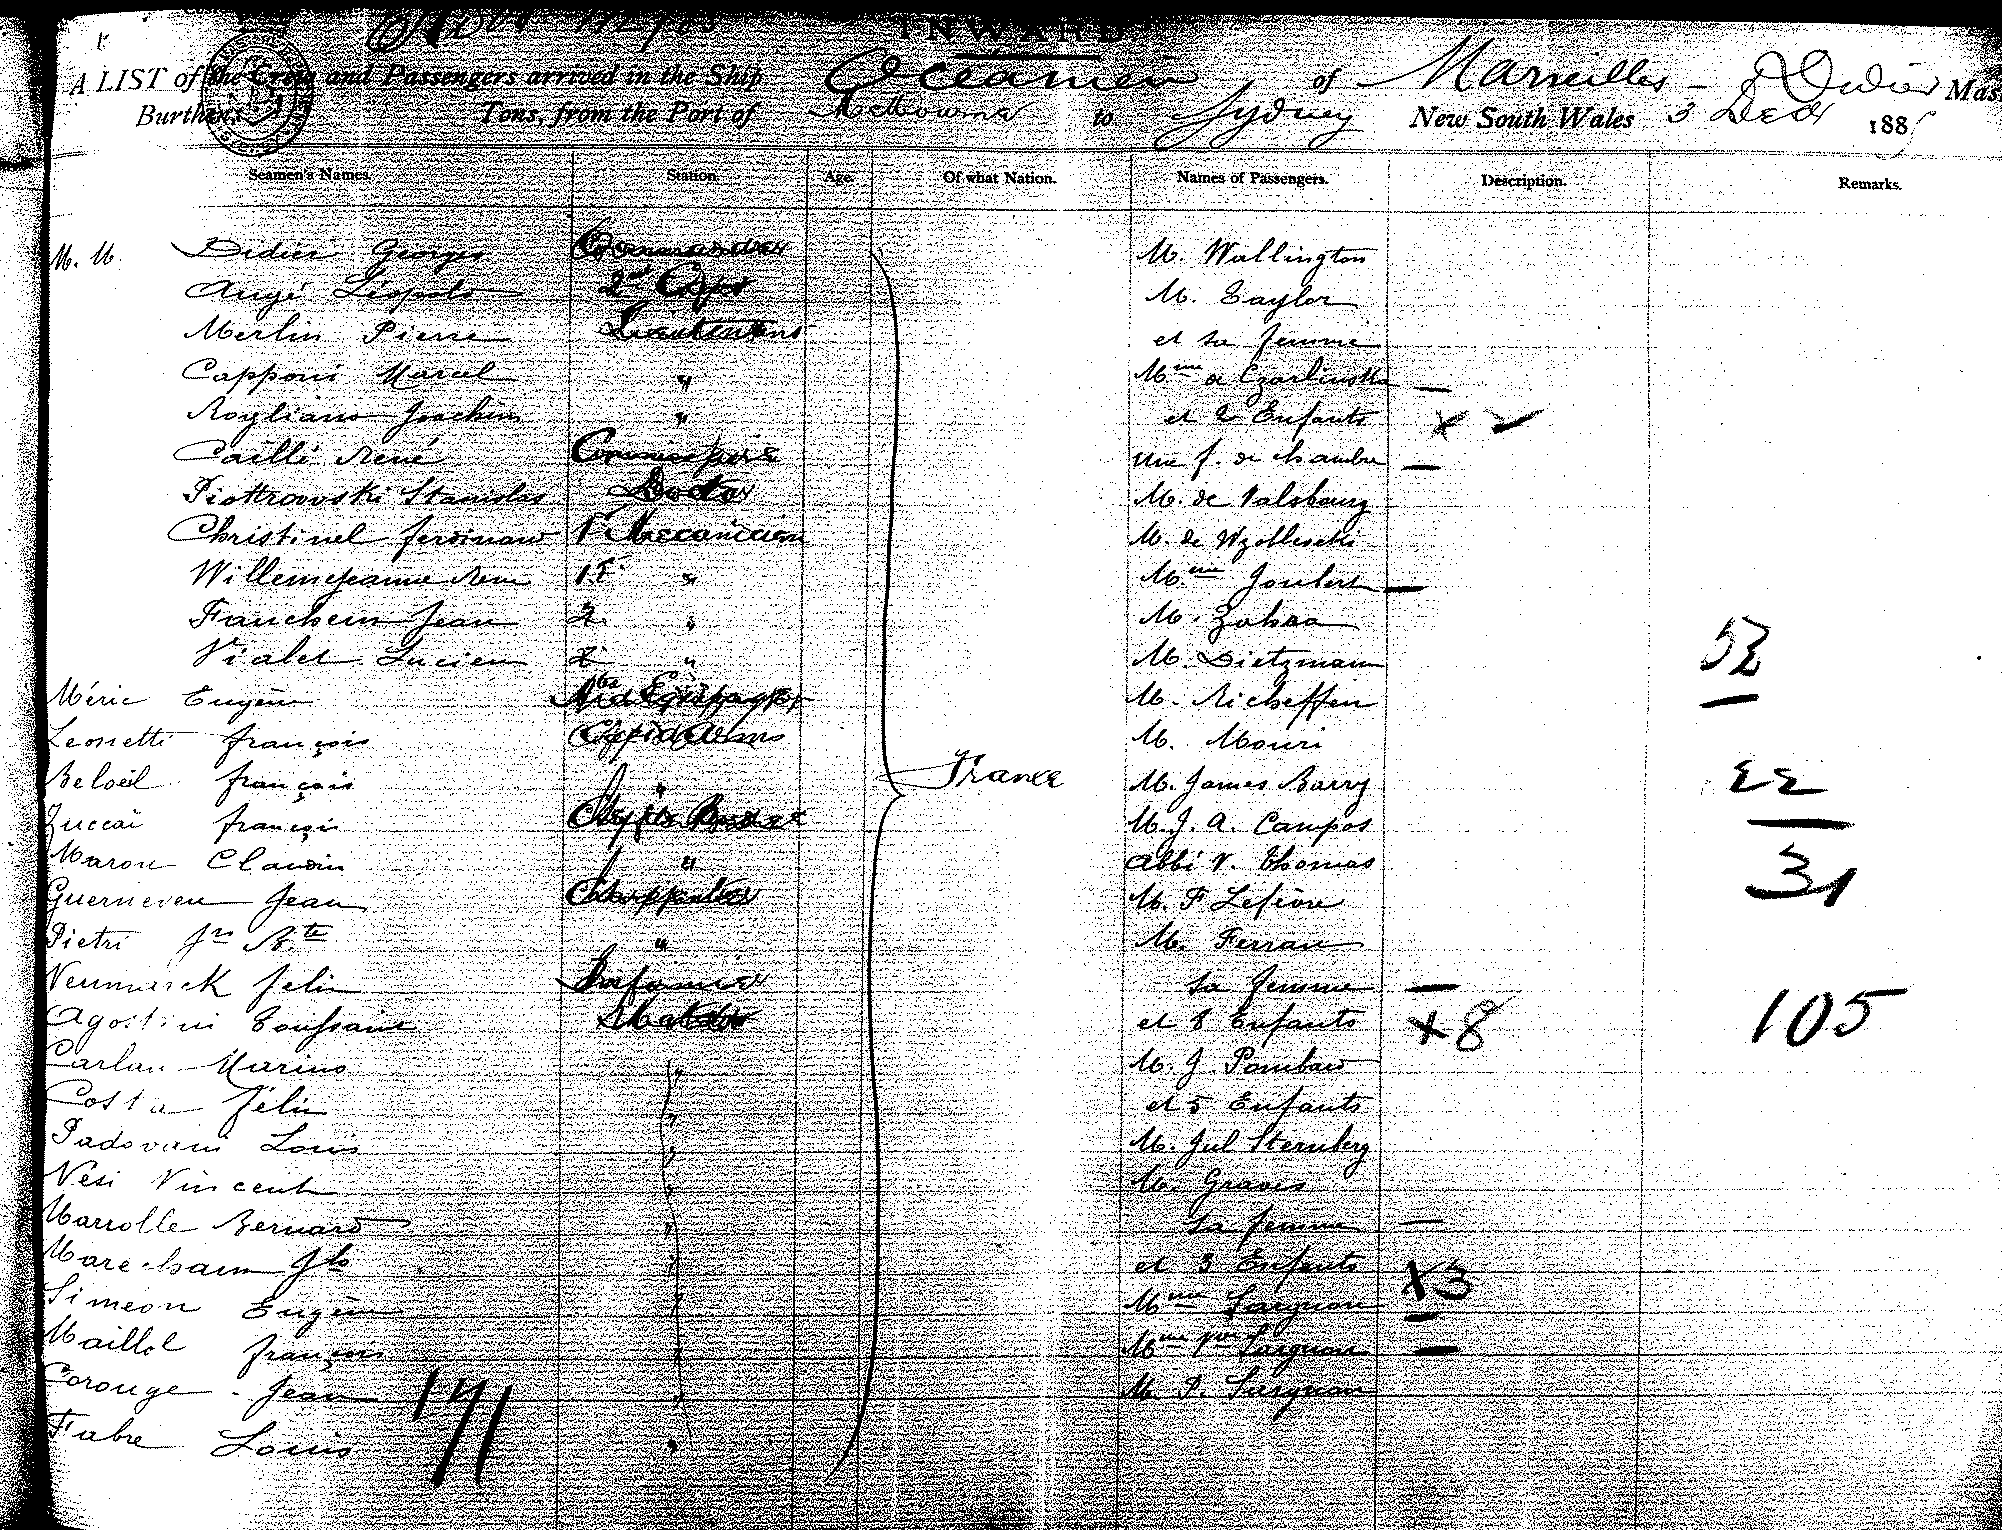 INWARD
A LIST of the Crew and Passengers arrived in the Ship Océanien of Marseilles - Didier Mas
Burthen Tons, from the Port of Melbourne to Sydney New South Wales 3 Decr 188
Seamen's Names. Station. Age. Of what Nation. Names of Passengers. Description. Remarks.
M. M. Didier Georges Commander M. Wallington
Augé Léopold 2nd Capt M. Taylor
Merlin Pierre Lieutenant et sa femme
Capponi Marcel " Mme de Czarlinska —
Rogliano Joachim " et 2 Enfants x 2
Caillé René Commissaire une f. de chambre —
Piottrowski Stanislas Doctor M. de Valsbourg
Christinel ferdinand 1r Mecanicien M. de
Willemejeanne René 1r " Mme Joubert —
Fauchein Jean 2 " M.
Vialet Lucien 2 " M. Dietzmann 53
Méric Eugène M. Richeffen
Leonetti françois M. Mouri
Beloeil françois " France M. James Barry 22
Zuccai françois M. J. A. Campos
Maron Claudin " Abbé V. Thomas 31
Guerneven Jean Charpentier M. F Lefèvre
Pietri Jn Bte " M. Ferran
Neumarck felix Infirmier sa femme —
Agostini Toussaint Matelot et 8 Enfants x 8 105
Carlan Marius " M. J. Pombard
Costa félix " et 5 Enfants
Padovani Louis " M. Jul Sternberg
Nesi Vincent " M. Graves
Marrolle Bernard " sa femme —
" et 3 Enfants x3
Simeon Eugène " Mme Sargnon —
Maillol françois " Mme Sargnon —
Corouge - Jean " M. P. Sargnon
Fabre Louis "